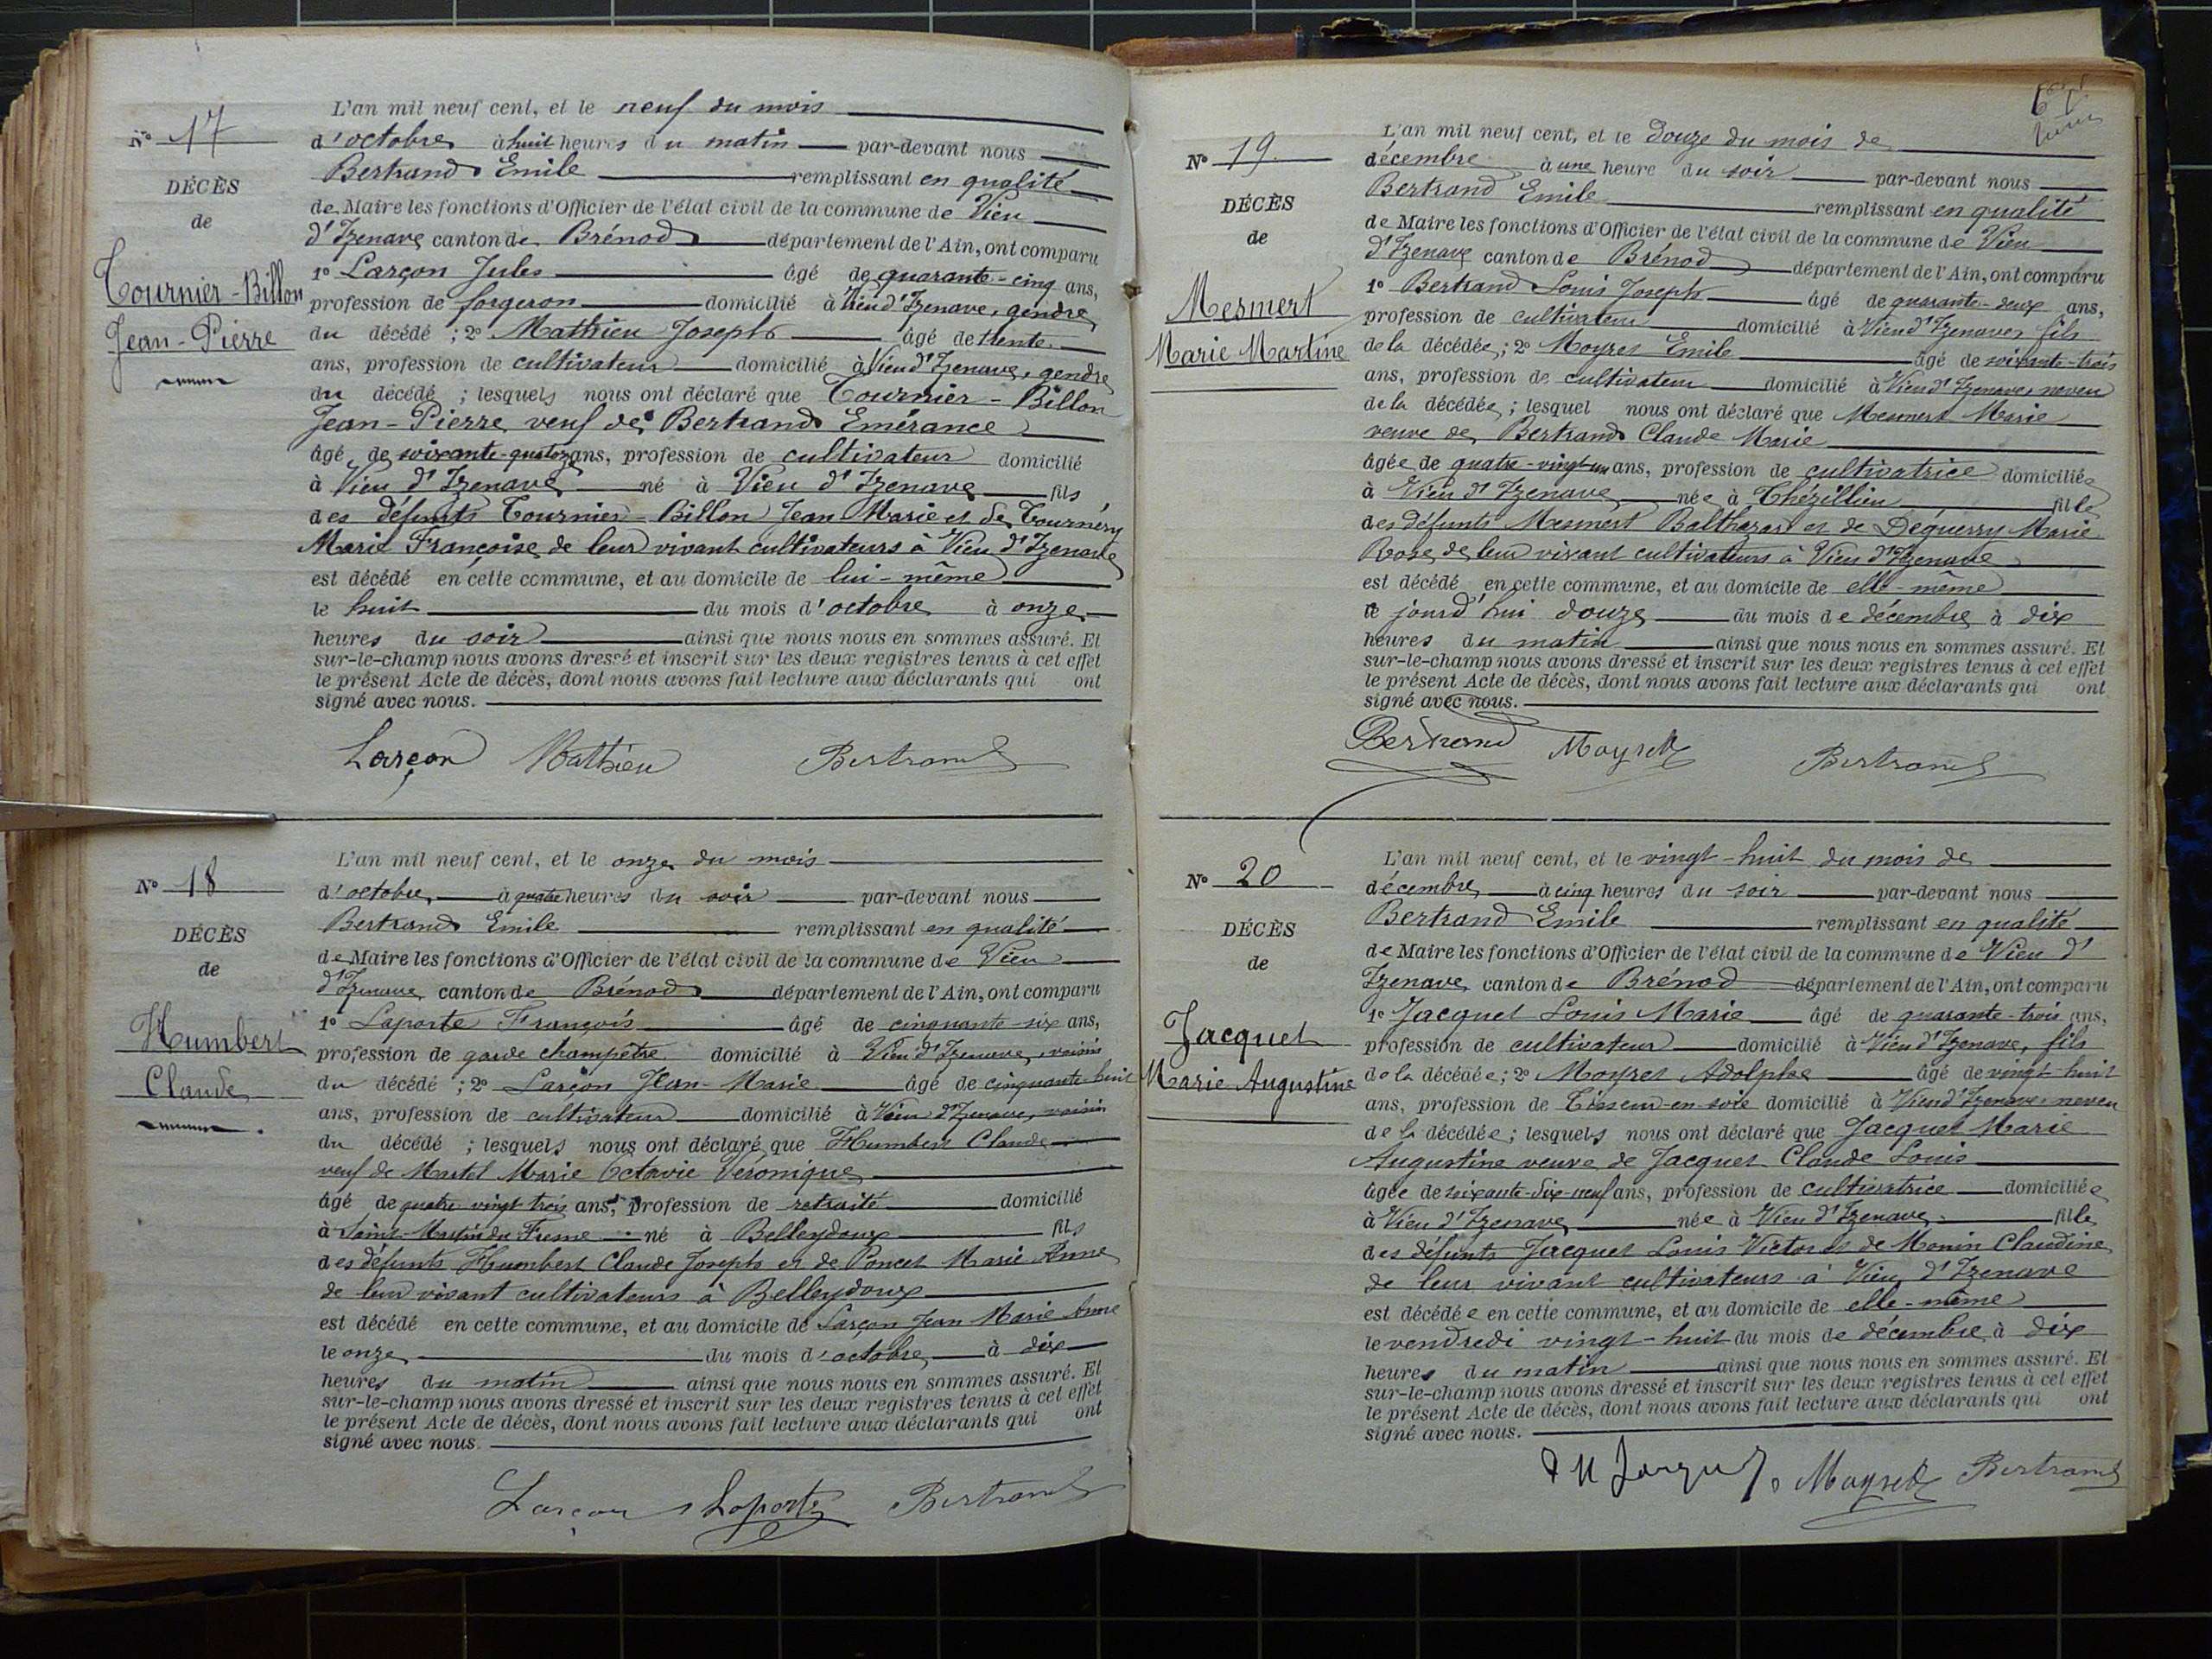 N° 17
DÉCÈS
de
Tournier-Billon
Jean-Pierre
L'an mil neuf cent, et le neuf du mois
d'octobre à huit heures du matin par-devant nous
Bertrand Emile remplissant en qualité
de Maire les fonctions d'Officier de l'état civil de la commune de Vieu
d'Izenave canton de Brénod département de l'Ain, ont comparu
1° Larçon Jules âgé de quarante-cinq ans,
profession de forgeron domicilié à Vieu d'Izenave, gendre
du décédé ; 2° Mathieu Joseph âgé de trente
ans, profession de cultivateur domicilié à Vieu d'Izenave, gendre
du décédé ; lesquels nous ont déclaré que Tournier-Billon
Jean-Pierre veuf de Bertrand Emérance
âgé de soixante-quatorze ans, profession de cultivateur domicilié
à Vieu d'Izenave né à Vieu d'Izenave fils
des défunts Tournier-Billon Jean Marie et de Tournéry
Marie Françoise de leur vivant cultivateurs à Vieu d'Izenave
est décédé en cette commune, et au domicile de lui-même
le huit du mois d'octobre à onze
heures du soir ainsi que nous nous en sommes assuré. Et
sur-le-champ nous avons dressé et inscrit sur les deux registres tenus à cet effet
le présent Acte de décès, dont nous avons fait lecture aux déclarants qui ont
signé avec nous.
Larçon Mathieu Bertrand
N° 18
DÉCÈS
de
Humbert
Claude
L'an mil neuf cent, et le onze du mois
d'octobre, à quatre heures du soir par-devant nous
Bertrand Emile remplissant en qualité
de Maire les fonctions d'Officier de l'état civil de la commune de Vieu
d'Izenave canton de Brénod département de l'Ain, ont comparu
1° Laporte François âgé de cinquante-six ans,
profession de garde champêtre domicilié à Vieu d'Izenave, voisin
du décédé ; 2° Larçon Jean-Marie âgé de cinquante-huit
ans, profession de cultivateur domicilié à Vieu d'Izenave, voisin
du décédé ; lesquels nous ont déclaré que Humbert Claude
veuf de Martel Marie Octavie Véronique
âgé de quatre vingt trois ans, profession de retraité domicilié
à Saint-Martin du Fresne né à Belleydoux fils
des défunts Humbert Claude Joseph et de Poncet Marie Anne
de leur vivant cultivateurs à Belleydoux
est décédé en cette commune, et au domicile de Larçon Jean Marie Anne
le onze du mois d'octobre à dix
heures du matin ainsi que nous nous en sommes assuré. Et
sur-le-champ nous avons dressé et inscrit sur les deux registres tenus à cet effet
le présent Acte de décès, dont nous avons fait lecture aux déclarants qui ont
signé avec nous.
Larçon Laporte Bertrand
N° 19
DÉCÈS
de
Mesmert
Marie Martine
L'an mil neuf cent, et le Douze du mois de
décembre à une heure du soir par-devant nous
Bertrand Emile remplissant en qualité
de Maire les fonctions d'Officier de l'état civil de la commune de Vieu
d'Izenave canton de Brénod département de l'Ain, ont comparu
1° Bertrand Louis Joseph âgé de quarante-deux ans,
profession de cultivateur domicilié à Vieu d'Izenave, fils
de la décédée ; 2° Moyret Emile âgé de soixante-trois
ans, profession de cultivateur domicilié à Vieu d'Izenave, neveu
de la décédée ; lesquel nous ont déclaré que Mesmert Marie
veuve de Bertrand Claude Marie
âgée de quatre-vingt-un ans, profession de cultivatrice domiciliée
à Vieu d'Izenave née à Thézillieu fille
des défunts Mesmert Balthazar et de Déguerry Marie
Rose de leur vivant cultivateurs à Vieu d'Izenave
est décédé en cette commune, et au domicile de elle-même
le jourd'hui douze du mois de décembre à dix
heures du matin ainsi que nous nous en sommes assuré. Et
sur-le-champ nous avons dressé et inscrit sur les deux registres tenus à cet effet
le présent Acte de décès, dont nous avons fait lecture aux déclarants qui ont
signé avec nous.
Bertrand Moyret Bertrand
N° 20
DÉCÈS
de
Jacquet
Marie Augustine
L'an mil neuf cent, et le vingt-huit du mois de
décembre à cinq heures du soir par-devant nous
Bertrand Emile remplissant en qualité
de Maire les fonctions d'Officier de l'état civil de la commune de Vieu d'
Izenave canton de Brénod département de l'Ain, ont comparu
1° Jacquet Louis Marie âgé de quarante-trois ans,
profession de cultivateur domicilié à Vieu d'Izenave, fils
de la décédée ; 2° Moyret Adolphe âgé de vingt-huit
ans, profession de Tisseur en soie domicilié à Vieu d'Izenave, neveu
de la décédée ; lesquels nous ont déclaré que Jacquet Marie
Augustine veuve de Jacquet Claude Louis
âgée de soixante-dix-neuf ans, profession de cultivatrice domiciliée
à Vieu d'Izenave née à Vieu d'Izenave fille
des défunts Jacquet Louis Victor et de Monin Claudine
de leur vivant cultivateurs à Vieu d'Izenave
est décédée en cette commune, et au domicile de elle-même
le vendredi vingt-huit du mois de décembre à dix
heures du matin ainsi que nous nous en sommes assuré. Et
sur-le-champ nous avons dressé et inscrit sur les deux registres tenus à cet effet
le présent Acte de décès, dont nous avons fait lecture aux déclarants qui ont
signé avec nous.
Moyret Bertrand